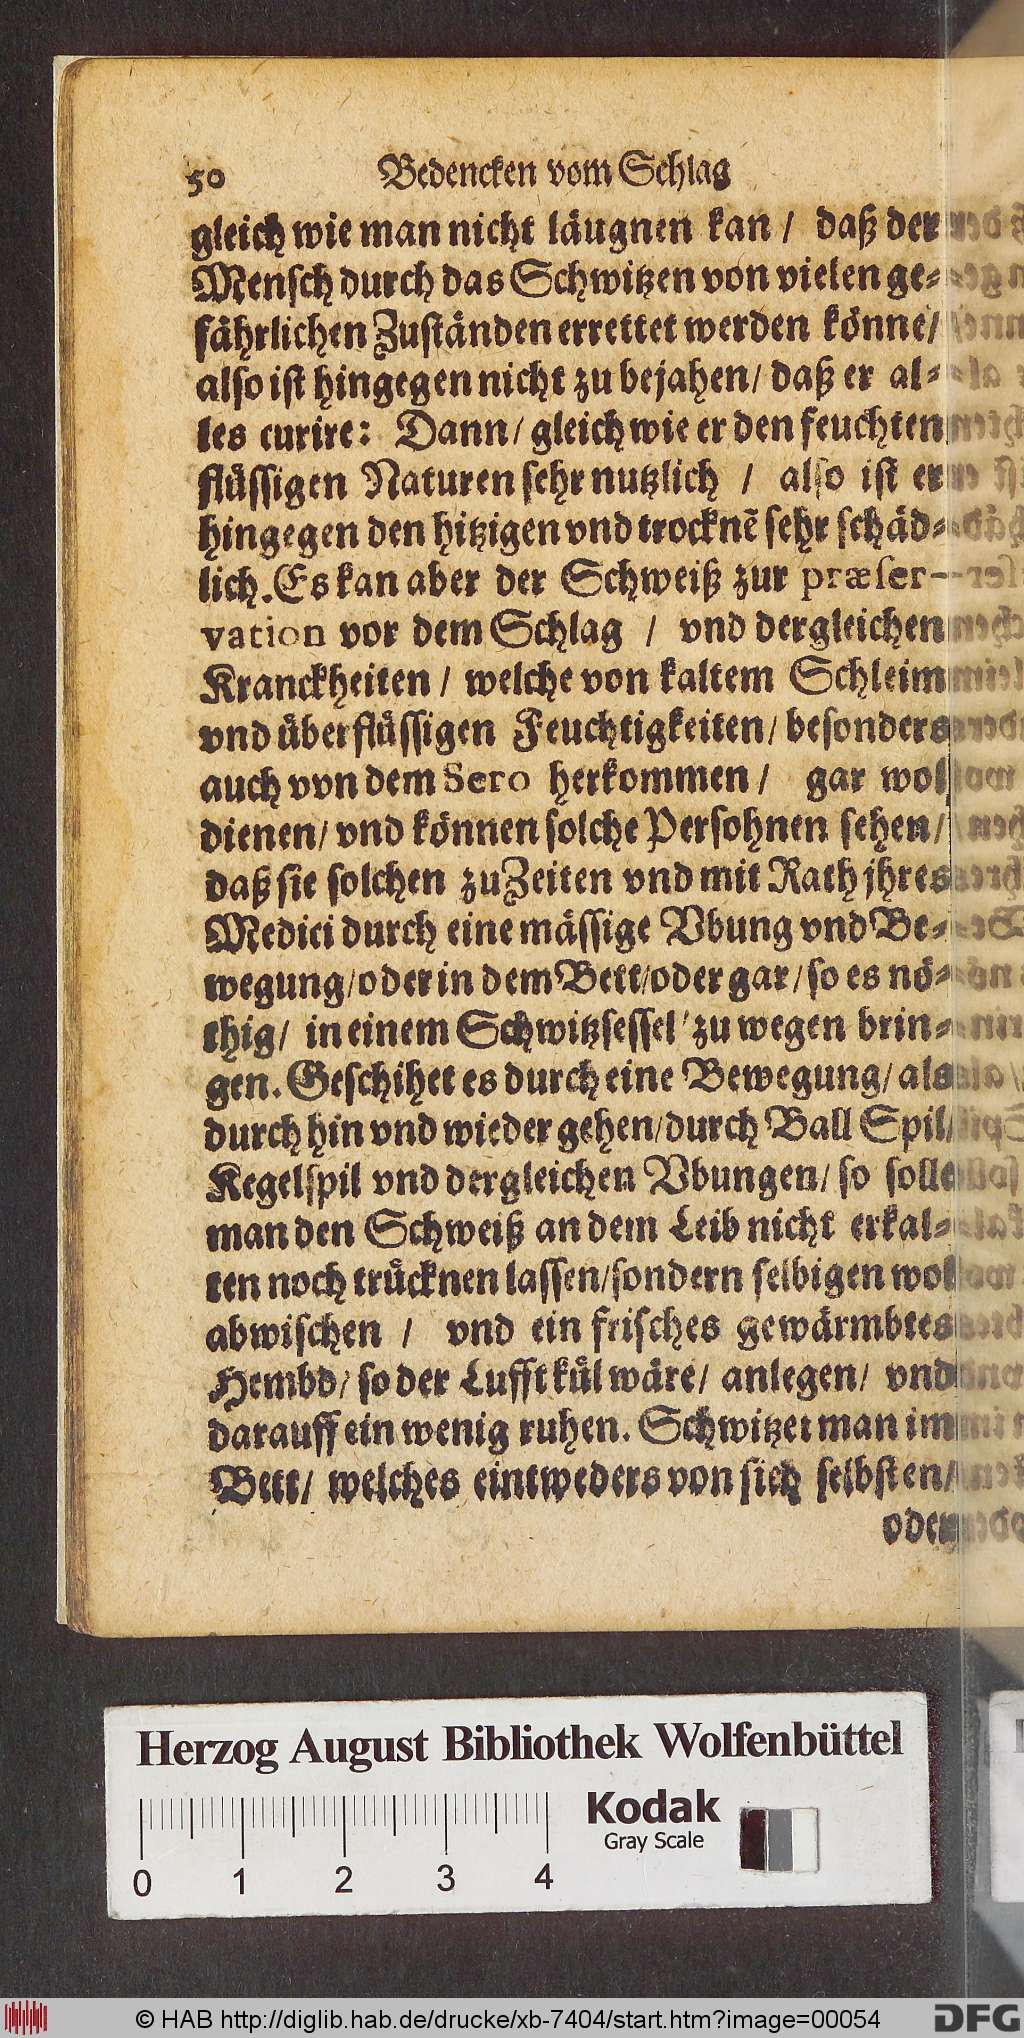 50 Bedencken vom Schlag
gleich wie man nicht läugnen kan / daß der
Mensch durch das Schwitzen von vielen ge-
fährlichen Zuständen errettet werden könne /
also ist hingegen nicht zu bejahen / daß er al-
les curire: Dann / gleich wie er den feuchten
flüssigen Naturen sehr nutzlich / also ist er
hingegen den hitzigen vnd trocknẽ sehr schäd-
lich. Es kan aber der Schweiß zur præser-
vation vor dem Schlag / vnd dergleichen
Kranckheiten / welche von kaltem Schleim
vnd überflüssigen Feuchtigkeiten / besonders
auch von dem Sero herkommen / gar wol
dienen / vnd können solche Persohnen sehen /
daß sie solchen zu Zeiten vnd mit Rath jhres
Medici durch eine mässige Vbung vnd Be-
wegung / oder in dem Bett / oder gar / so es nö-
thig / in einem Schwitzsessel / zu wegen brin-
gen. Geschihet es durch eine Bewegung / als
durch hin vnd wieder gehen / durch Ball Spil /
Kegelspil vnd dergleichen Vbungen / so solle
man den Schweiß an dem Leib nicht erkal-
ten noch trücknen lassen / sondern selbigen wol
abwischen / vnd ein frisches gewärmbtes
Hembd / so der Lufft kül wäre / anlegen / vnd
darauff ein wenig ruhen. Schwitzet man im
Bett / welches eintweders von sich selbsten /
oder
Herzog August Bibliothek Wolfenbüttel
Kodak
Gray Scale
0 1 2 3 4
© HAB http://diglib.hab.de/drucke/xb-7404/start.htm?image=00054
DFG